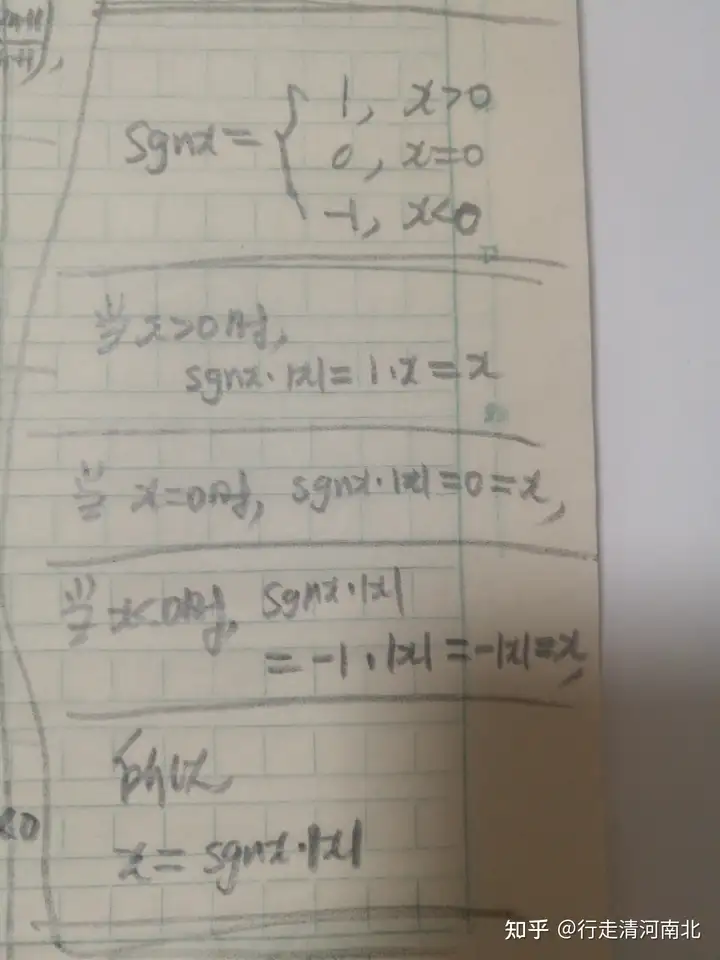 sgnx = { 1, x>0
0, x=0
-1, x<0
当x>0时,
sgnx·|x|=1·x=x
当x=0时, sgnx·|x|=0=x,
当x<0时, sgnx·|x|
=-1·|x|=-|x|=x,
所以
x=sgnx·|x|
<0
知乎 @行走清河南北